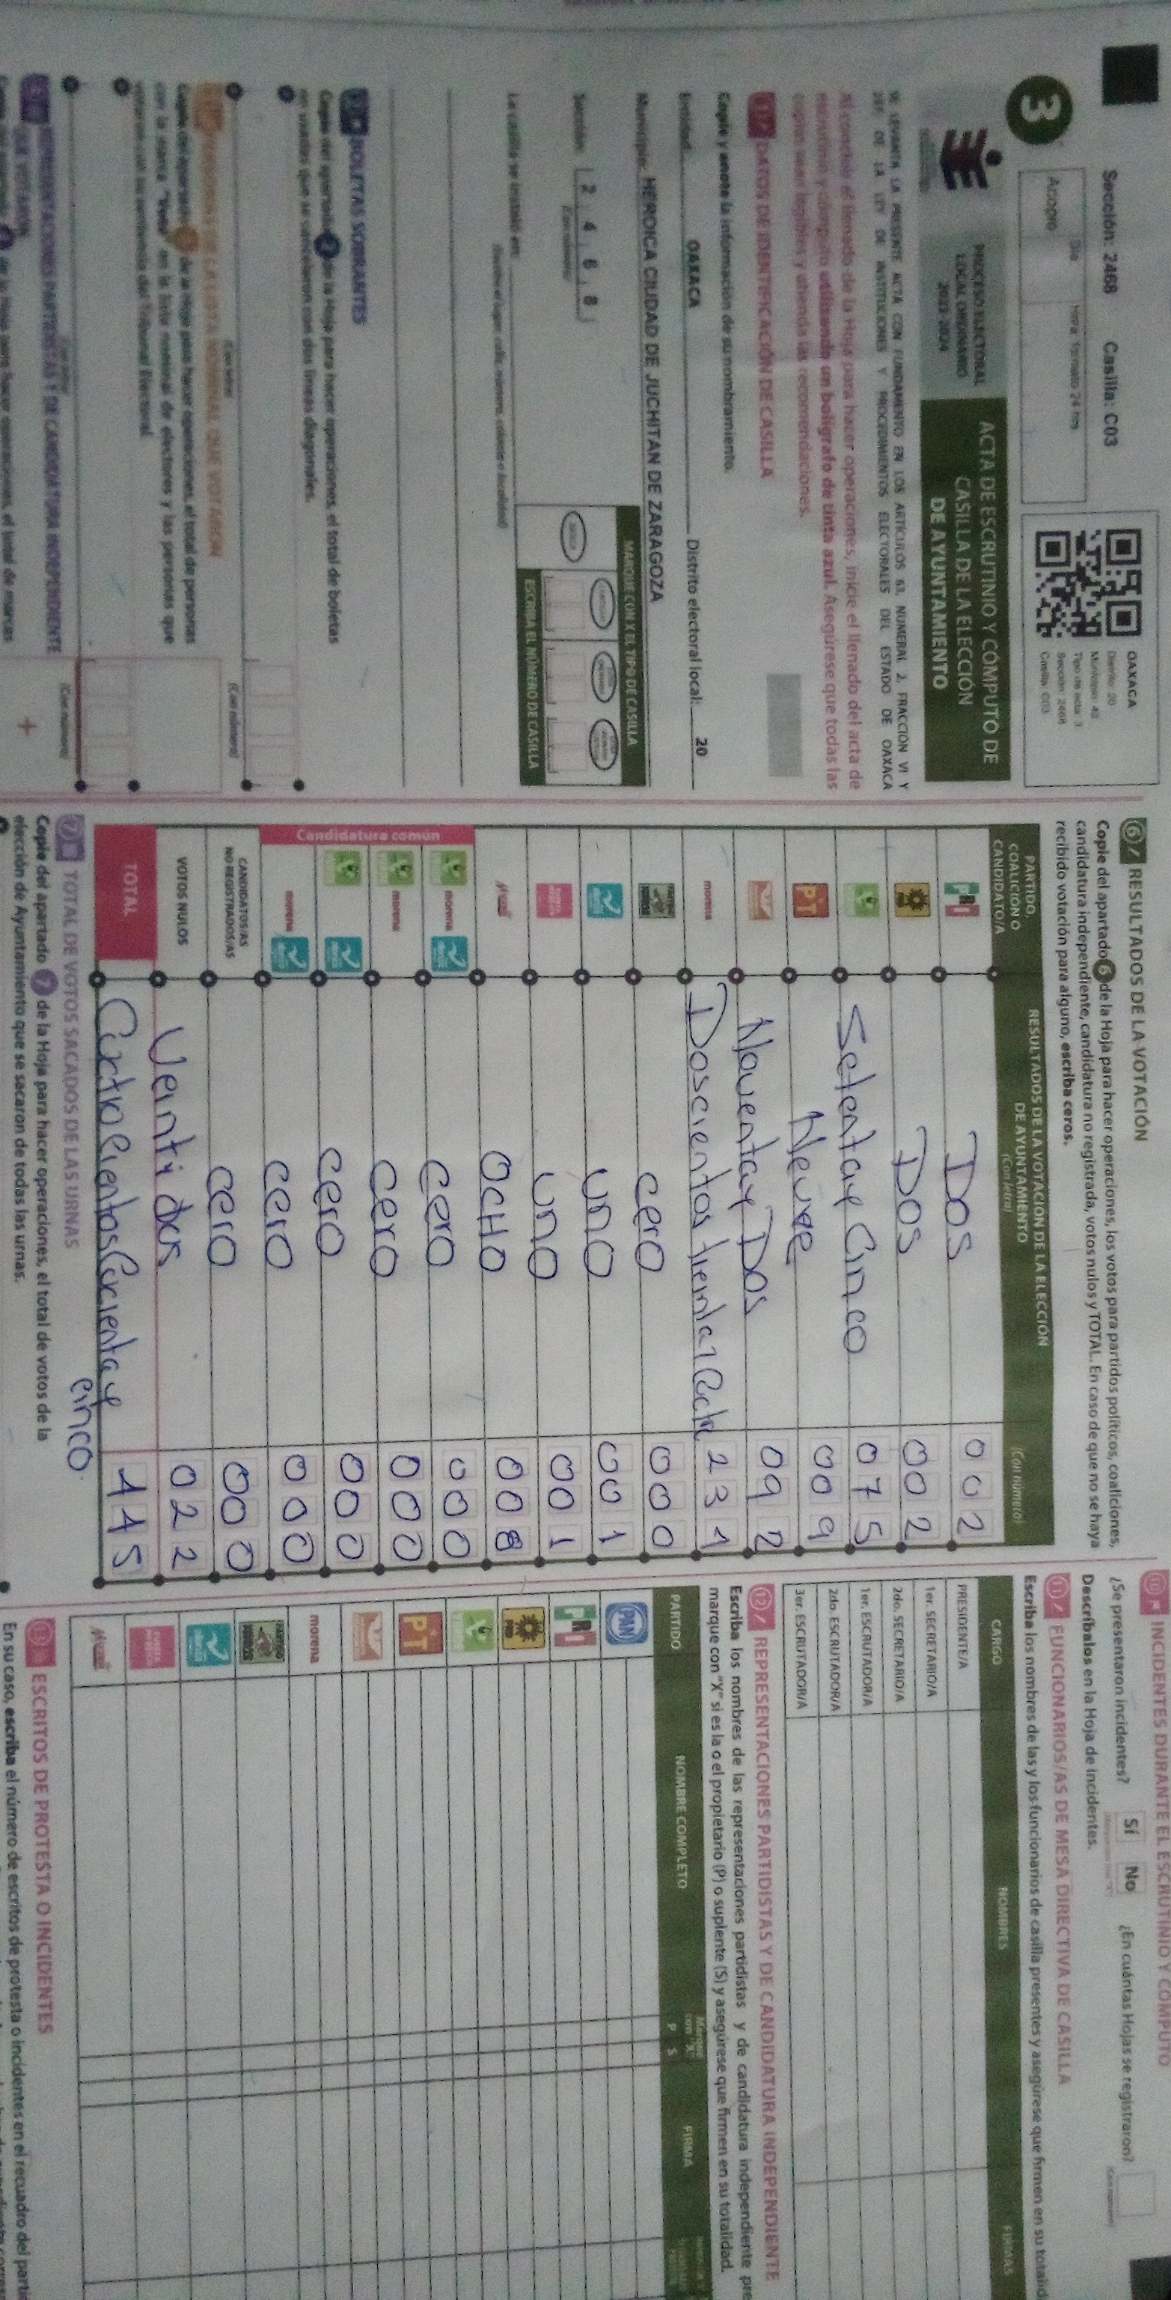 Sección: 2468 Casilla: C03
Acopio
Día
Hora formato 24 hrs
3
OAXACA
Distrito: 20
Municipio: 43
Tipo de acta: 3
Sección: 2468
Casilla: C03
PROCESO ELECTORAL
LOCAL ORDINARIO
2023-2024
ACTA DE ESCRUTINIO Y CÓMPUTO DE
CASILLA DE LA ELECCIÓN
DE AYUNTAMIENTO
SE LEVANTA LA PRESENTE ACTA CON FUNDAMENTO EN LOS ARTÍCULOS 63, NUMERAL 2, FRACCIÓN VI Y
DE LA LEY DE INSTITUCIONES Y PROCEDIMIENTOS ELECTORALES DEL ESTADO DE OAXACA
Al concluir el llenado de la Hoja para hacer operaciones, inicie el llenado del acta de
escrutinio y cómputo utilizando un bolígrafo de tinta azul. Asegúrese que todas las
copias sean legibles y atienda las recomendaciones.
1 DATOS DE IDENTIFICACIÓN DE CASILLA
Copie y anote la información de su nombramiento.
Entidad: OAXACA Distrito electoral local: 20
Municipio: HEROICA CIUDAD DE JUCHITAN DE ZARAGOZA
Sección: 2 4 6 8
(Con número)
MARQUE CON X EL TIPO DE CASILLA
ESCRIBA EL NÚMERO DE CASILLA
La casilla se instaló en:
(Escriba el lugar, calle, número, colonia o localidad)
2 BOLETAS SOBRANTES
Copie del apartado 2 de la Hoja para hacer operaciones, el total de boletas
no usadas que se cancelaron con dos líneas diagonales.
(Con letra) (Con número)
3 PERSONAS DE LA LISTA NOMINAL QUE VOTARON
Copie del apartado 3 de la Hoja para hacer operaciones, el total de personas
con la marca "Votó" en la lista nominal de electores y las personas que
votaron con su sentencia del Tribunal Electoral.
(Con letra) (Con número)
REPRESENTACIONES PARTIDISTAS Y DE CANDIDATURA INDEPENDIENTE
QUE VOTARON
6 RESULTADOS DE LA VOTACIÓN
Copie del apartado 6 de la Hoja para hacer operaciones, los votos para partidos políticos, coaliciones,
candidatura independiente, candidatura no registrada, votos nulos y TOTAL. En caso de que no se haya
recibido votación para alguno, escriba ceros.
PARTIDO,
COALICIÓN O
CANDIDATO/A
RESULTADOS DE LA VOTACIÓN DE LA ELECCIÓN
DE AYUNTAMIENTO
(Con letra) (Con número)
PRI DOS 002
PRD DOS 002
Setentay Cinco 075
PT Nueve 009
Noventay Dos 092
morena Doscientos treinta y 231
cero 000
uno 001
uno 001
OCHO 008
Candidatura común
morena cero 000
morena cero 000
cero 000
morena cero 000
CANDIDATOS/AS
NO REGISTRADOS/AS cero 000
VOTOS NULOS Veinti dos 022
TOTAL 445
cinco.
7 TOTAL DE VOTOS SACADOS DE LAS URNAS
Copie del apartado 7 de la Hoja para hacer operaciones, el total de votos de la
elección de Ayuntamiento que se sacaron de todas las urnas.
10 INCIDENTES DURANTE EL ESCRUTINIO Y CÓMPUTO
¿Se presentaron incidentes? Sí No ¿En cuántas Hojas se registraron?
Descríbalos en la Hoja de incidentes.
11 FUNCIONARIOS/AS DE MESA DIRECTIVA DE CASILLA
Escriba los nombres de las y los funcionarios de casilla presentes y asegúrese que firmen en su totalid
CARGO NOMBRES FIRMAS
PRESIDENTE/A
1er. SECRETARIO/A
2do. SECRETARIO/A
1er. ESCRUTADOR/A
2do. ESCRUTADOR/A
3er. ESCRUTADOR/A
12 REPRESENTACIONES PARTIDISTAS Y DE CANDIDATURA INDEPENDIENTE
Escriba los nombres de las representaciones partidistas y de candidatura independiente pre
marque con "X" si es la o el propietario (P) o suplente (S) y asegúrese que firmen en su totalidad.
PARTIDO NOMBRE COMPLETO Marque con "X" P S FIRMA
PAN
PRI
PRD
PT
morena
13 ESCRITOS DE PROTESTA O INCIDENTES
En su caso, escriba el número de escritos de protesta o incidentes en el recuadro del parti